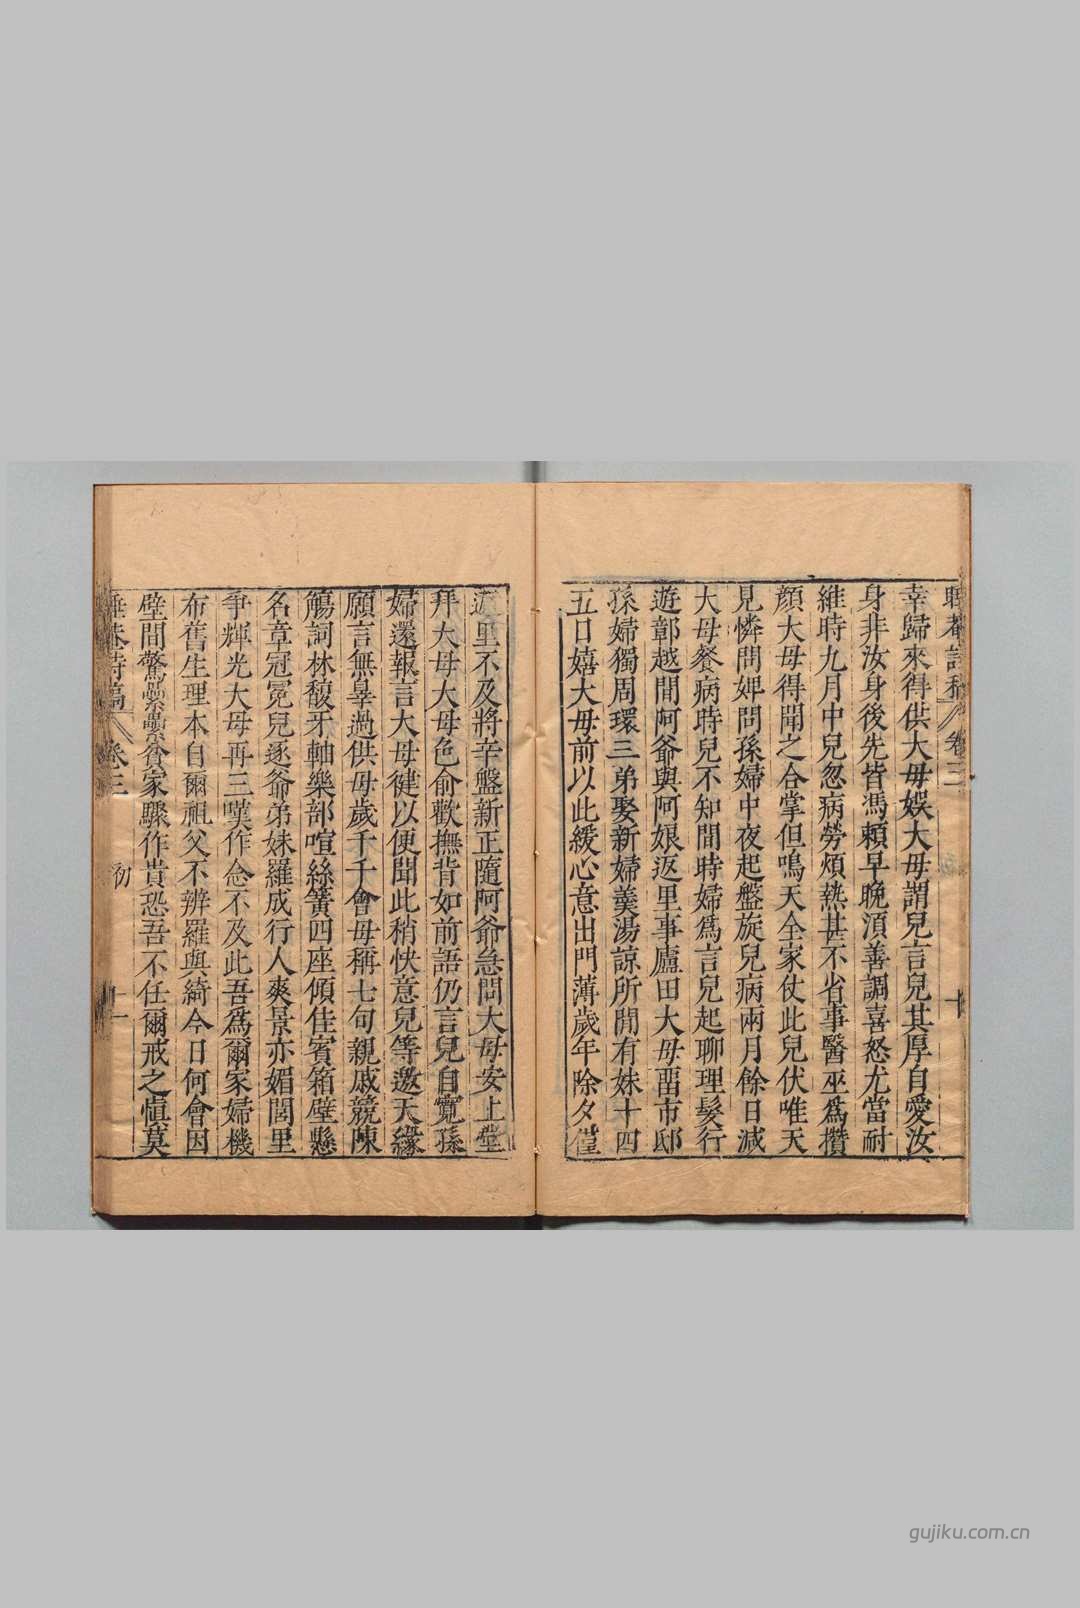 卷三
十
幸歸來得供大母娛大母謂兒言兒其厚自愛汝
身非汝身後先皆馮賴早晚湏善調喜怒尤當耐
維時九月中兒忽病勞煩熱甚不省事醫巫爲攢
顏大母得聞之合掌但鳴天全家仗此兒伏唯天
見憐問娌問孫婦中夜起盤旋兒病兩月餘日減
大母餐病時兒不知間時婦爲言兒起聊理髮行
遊鄣越間阿爺與阿娘返里事廬田大母畱市邸
孫婦獨周環三弟娶新婦羹湯諒所閒有妹十四
五日嬉大母前以此緩心意出門薄歲年除夕僅
返里不及將辛盤新正隨阿爺急問大母安上堂
拜大母大母色俞歡撫背如前語仍言兒自寬孫
婦還報言大母健以便聞此稍快意兒等邀天緣
願言無辠過供母歲千千會母稱七旬親戚競陳
觴詞林馥牙軸樂部喧絲簧四座傾佳賓箱壁懸
名章冠冕兒逐爺弟妹羅成行人爽景亦媚閭里
爭輝光大母再三嘆作念不及此吾爲爾家婦機
布舊生理本自爾祖父不辨羅與綺今日何會因
壁間驚纍纍貧家驟作貴恐吾不任爾戒之慎莫
睡菴詩稿
卷三
初
十一
gujiku.com.cn